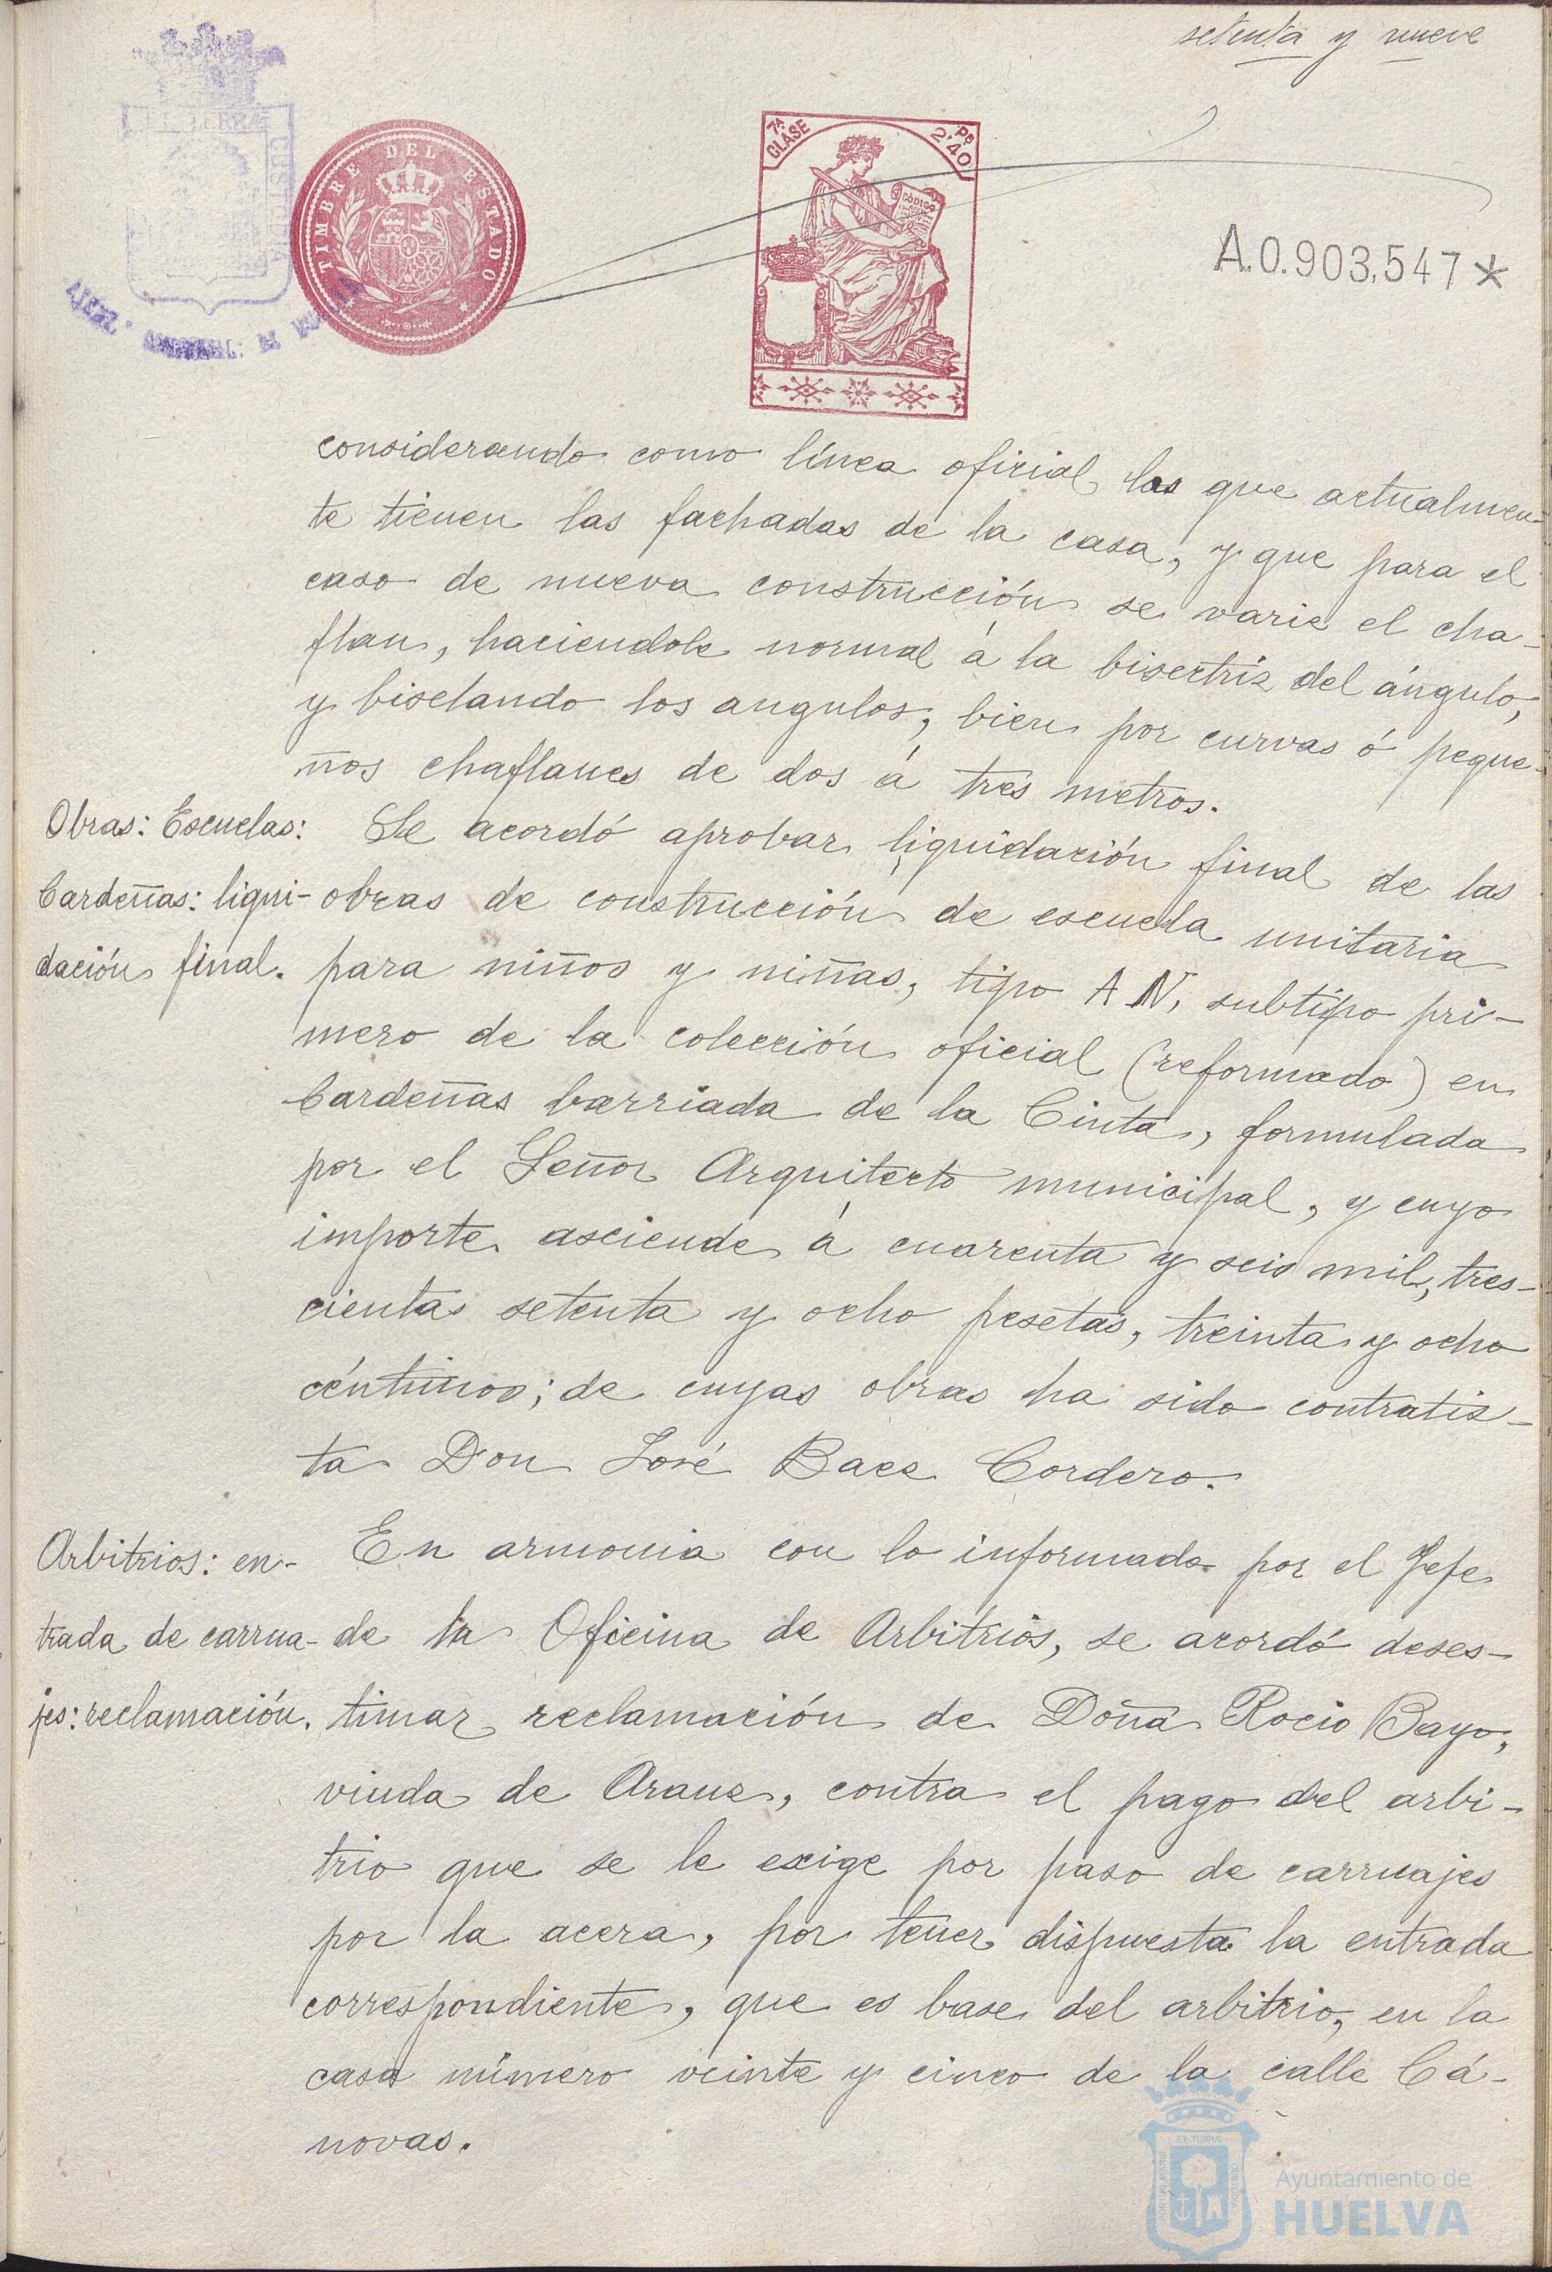 setenta y nueve
TIMBRE DEL ESTADO
7ª CLASE
Pts 2'40
CÓDIGO
A.0.903,547*
considerando como línea oficial las que actualmen-
te tienen las fachadas de la casa, y que para el
caso de nueva construcción se varie el cha-
flan, haciendole normal á la bisectriz del ángulo,
y biselando los angulos, bien por curvas ó peque-
ños chaflanes de dos á tres metros.
Obras: Escuelas: Se acordó aprobar liquidación final de las
Cardeñas: liqui- obras de construcción de escuela unitaria
dación final. para niños y niñas, tipo A N, subtipo pri-
mero de la colección oficial (reformado) en
Cardeñas barriada de la Cinta, formulada
por el Señor Arquitecto municipal, y cuyo
importe asciende á cuarenta y seis mil, tres-
cientas setenta y ocho pesetas, treinta y ocho
céntimos; de cuyas obras ha sido contratis-
ta Don José Baez Cordero.
Arbitrios: en- En armonia con lo informado por el Jefe
trada de carrua- de la Oficina de Arbitrios, se acordó deses-
jes: reclamación. timar reclamación de Doña Rocio Bayo,
viuda de Arauz, contra el pago del arbi-
trio que se le exige por paso de carruajes
por la acera, por tener dispuesta la entrada
correspondiente, que es base del arbitrio, en la
casa número veinte y cinco de la calle Cá-
novas.
Ayuntamiento de
HUELVA